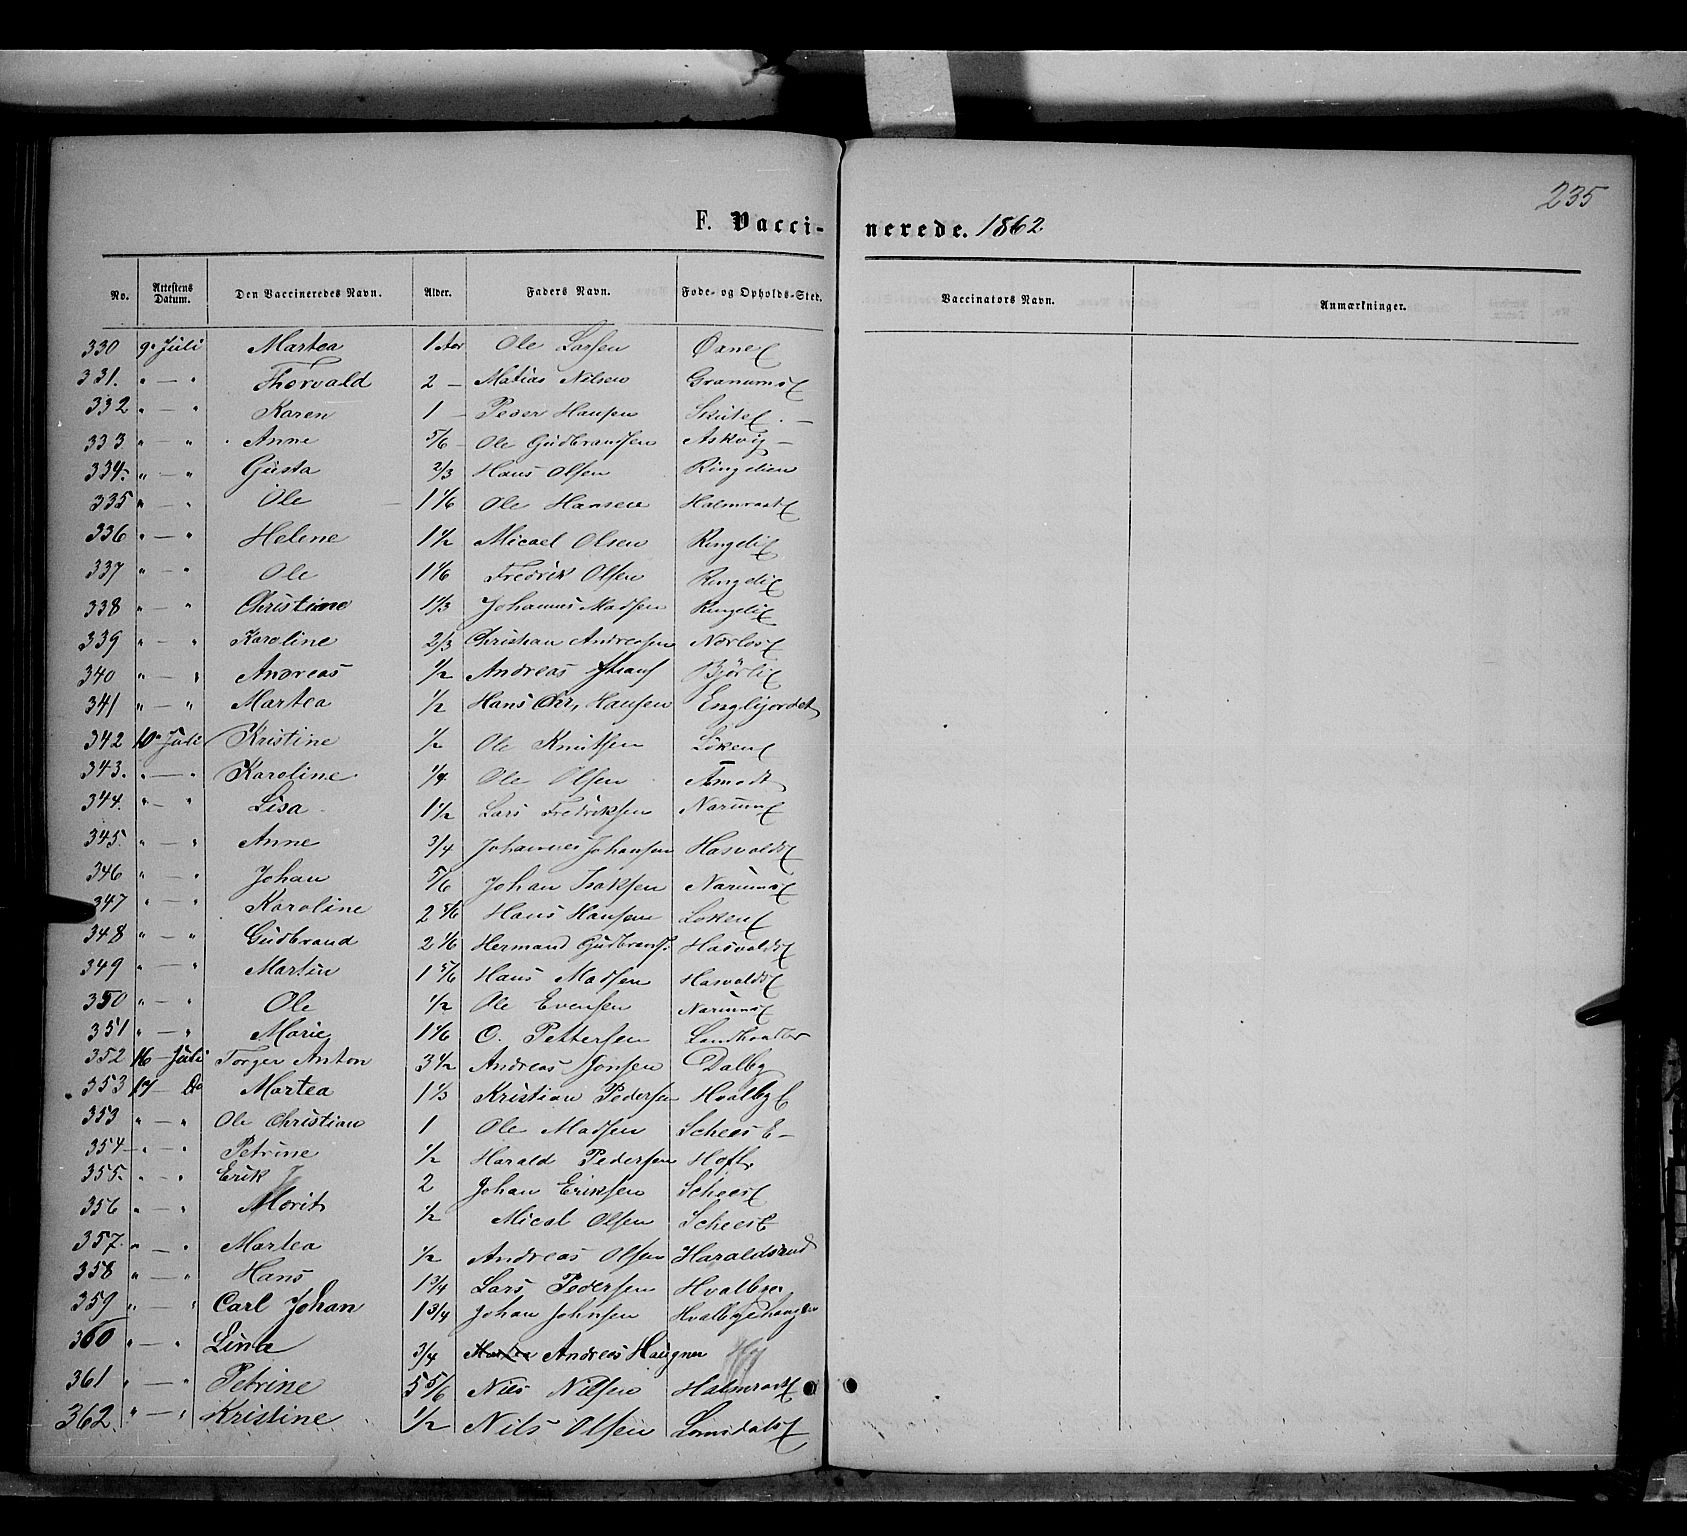 235
F. Vacci- nerede. 1862
No. Attestens Datum. Den Vaccineredes Navn. Alder. Faders Navn. Føde- og Opholds-Sted. Vaccinators Navn. Anmærkninger.
330 9 Juli Martea 1 Aar Ole Larsen Øxne
331. " — " Thorvald 2 — Matias Nilsen Granums
332 " — " Karen 1 — Peder Hansen Skute
333 " — " Anne 5/6 — Ole Gudbrandsen Askvig
334. " — " Gusta 2/3 Hans Olsen Ringelien
335 " — " Ole 1 1/6 Ole Hansen Halmrast
336 " — " Helene 1 1/2 Micael Olsen Ringeli
337 " — " Ole 1 1/6 Fredrik Olsen Ringeli
338 " — " Christiane 1 1/3 Johannes Madsen Ringeli
339 " — " Karoline 2/3 Christian Andreasen
340 " — " Andreas 1/2 Andreas Bjørli
341 " — " Martea 1/2 Hans Chr, Hansen Englijordet
342 10 Juli Kristine 1/2 Ole Knutsen Løken
343. " — " Karoline 1/4 Ole Olsen
344. " — " Lisa 1 1/2 Lars Fredriksen Narum
345. " — " Anne 3/4 Johannes Johansen Hasvolds
346 " — " Johan 5/6 Johan Isaksen Narums
347 " — " Karoline 2 5/6 Hans Hansen Løken
348 " — " Gudbrand 2 1/6 Hermand Gudbrands. Hasvolds
349 " — " Martin 1 5/6 Hans Madsen Hasvolds
350 " — " Ole 1/2 Ole Evensen Narums
351 " — " Marie 1 1/6 O. Pettersen Landhandler
352 16 Juli Torger Anton 3 1/2 Andreas Jonsen Dalby
353 17 — Do Martea 1 1/3 Kristian Pedersen Hvalby
353 " — " Ole Christian 1 Ole Madsen Schees E —
354 — " — " Petrine 1/2 Harald Pedersen Hoft
355. " — " Erik 2 Johan Eriksen Schees
356 " — " Morit 1/2 Mical Olsen Schees
357. " — " Martea 1/2 Andreas Olsen Haraldsrud
358 " — " Hans 1 3/4 Lars Pedersen Hvalbye
359 " — " Carl Johan 1 3/4 Johan Johnsen Hvalbyehaugen
360 " — " Lina 3/4 Andreas Haugner
361 " — " Petrine 5 5/6 Nils Nilsen Halmrast
362. " — " Kristine 1/2 Nils Olsen Lomsdals